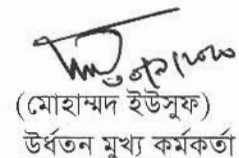 (মোহাম্মদ ইউসুফ)
উর্ধতন মুখ্য কর্মকর্তা